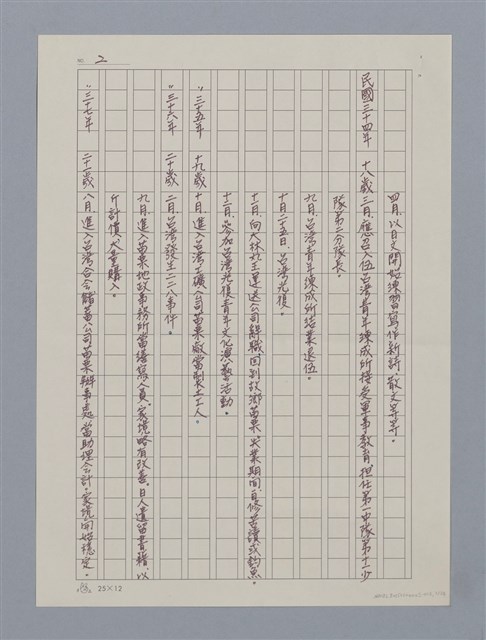 NO. 2
四月、以日文開始練習寫作新詩、散文等等。
民國三十四年 十八歲 三月、應召入伍台灣青年練成所接受軍事教育、担任第一中隊第十一少
隊第二分隊長。
九月、台灣青年煉成所結業退伍。
十月二十五日、台灣光復。
十一月、向大林丸王運送公司辭職回到故鄉苗栗、失業期間、自修苦讀或釣魚。
十二月、參加台灣光復青年文化演藝活動。
〃三十五年 十九歲 十月、進入台灣工礦公司苗栗廠當製工工人。
〃三十六年 二十歲 二月、台灣發生二二八事件。
九月、進入苗栗地政事務所當繕寫人員、家境略有改善、日人遺留書籍、以
斤計價、大量購入。
〃三十七年 二十一歲 八月、進入台灣合会儲蓄公司苗栗辦事處當助理会計、家境開始穩定。
25×12